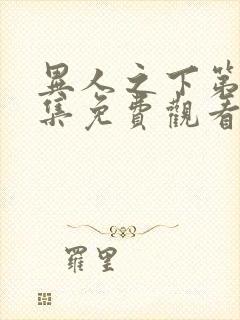 異人之下第
集免費觀看
羅里